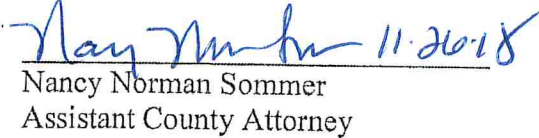 11-26-18
Nancy Norman Sommer
Assistant County Attorney